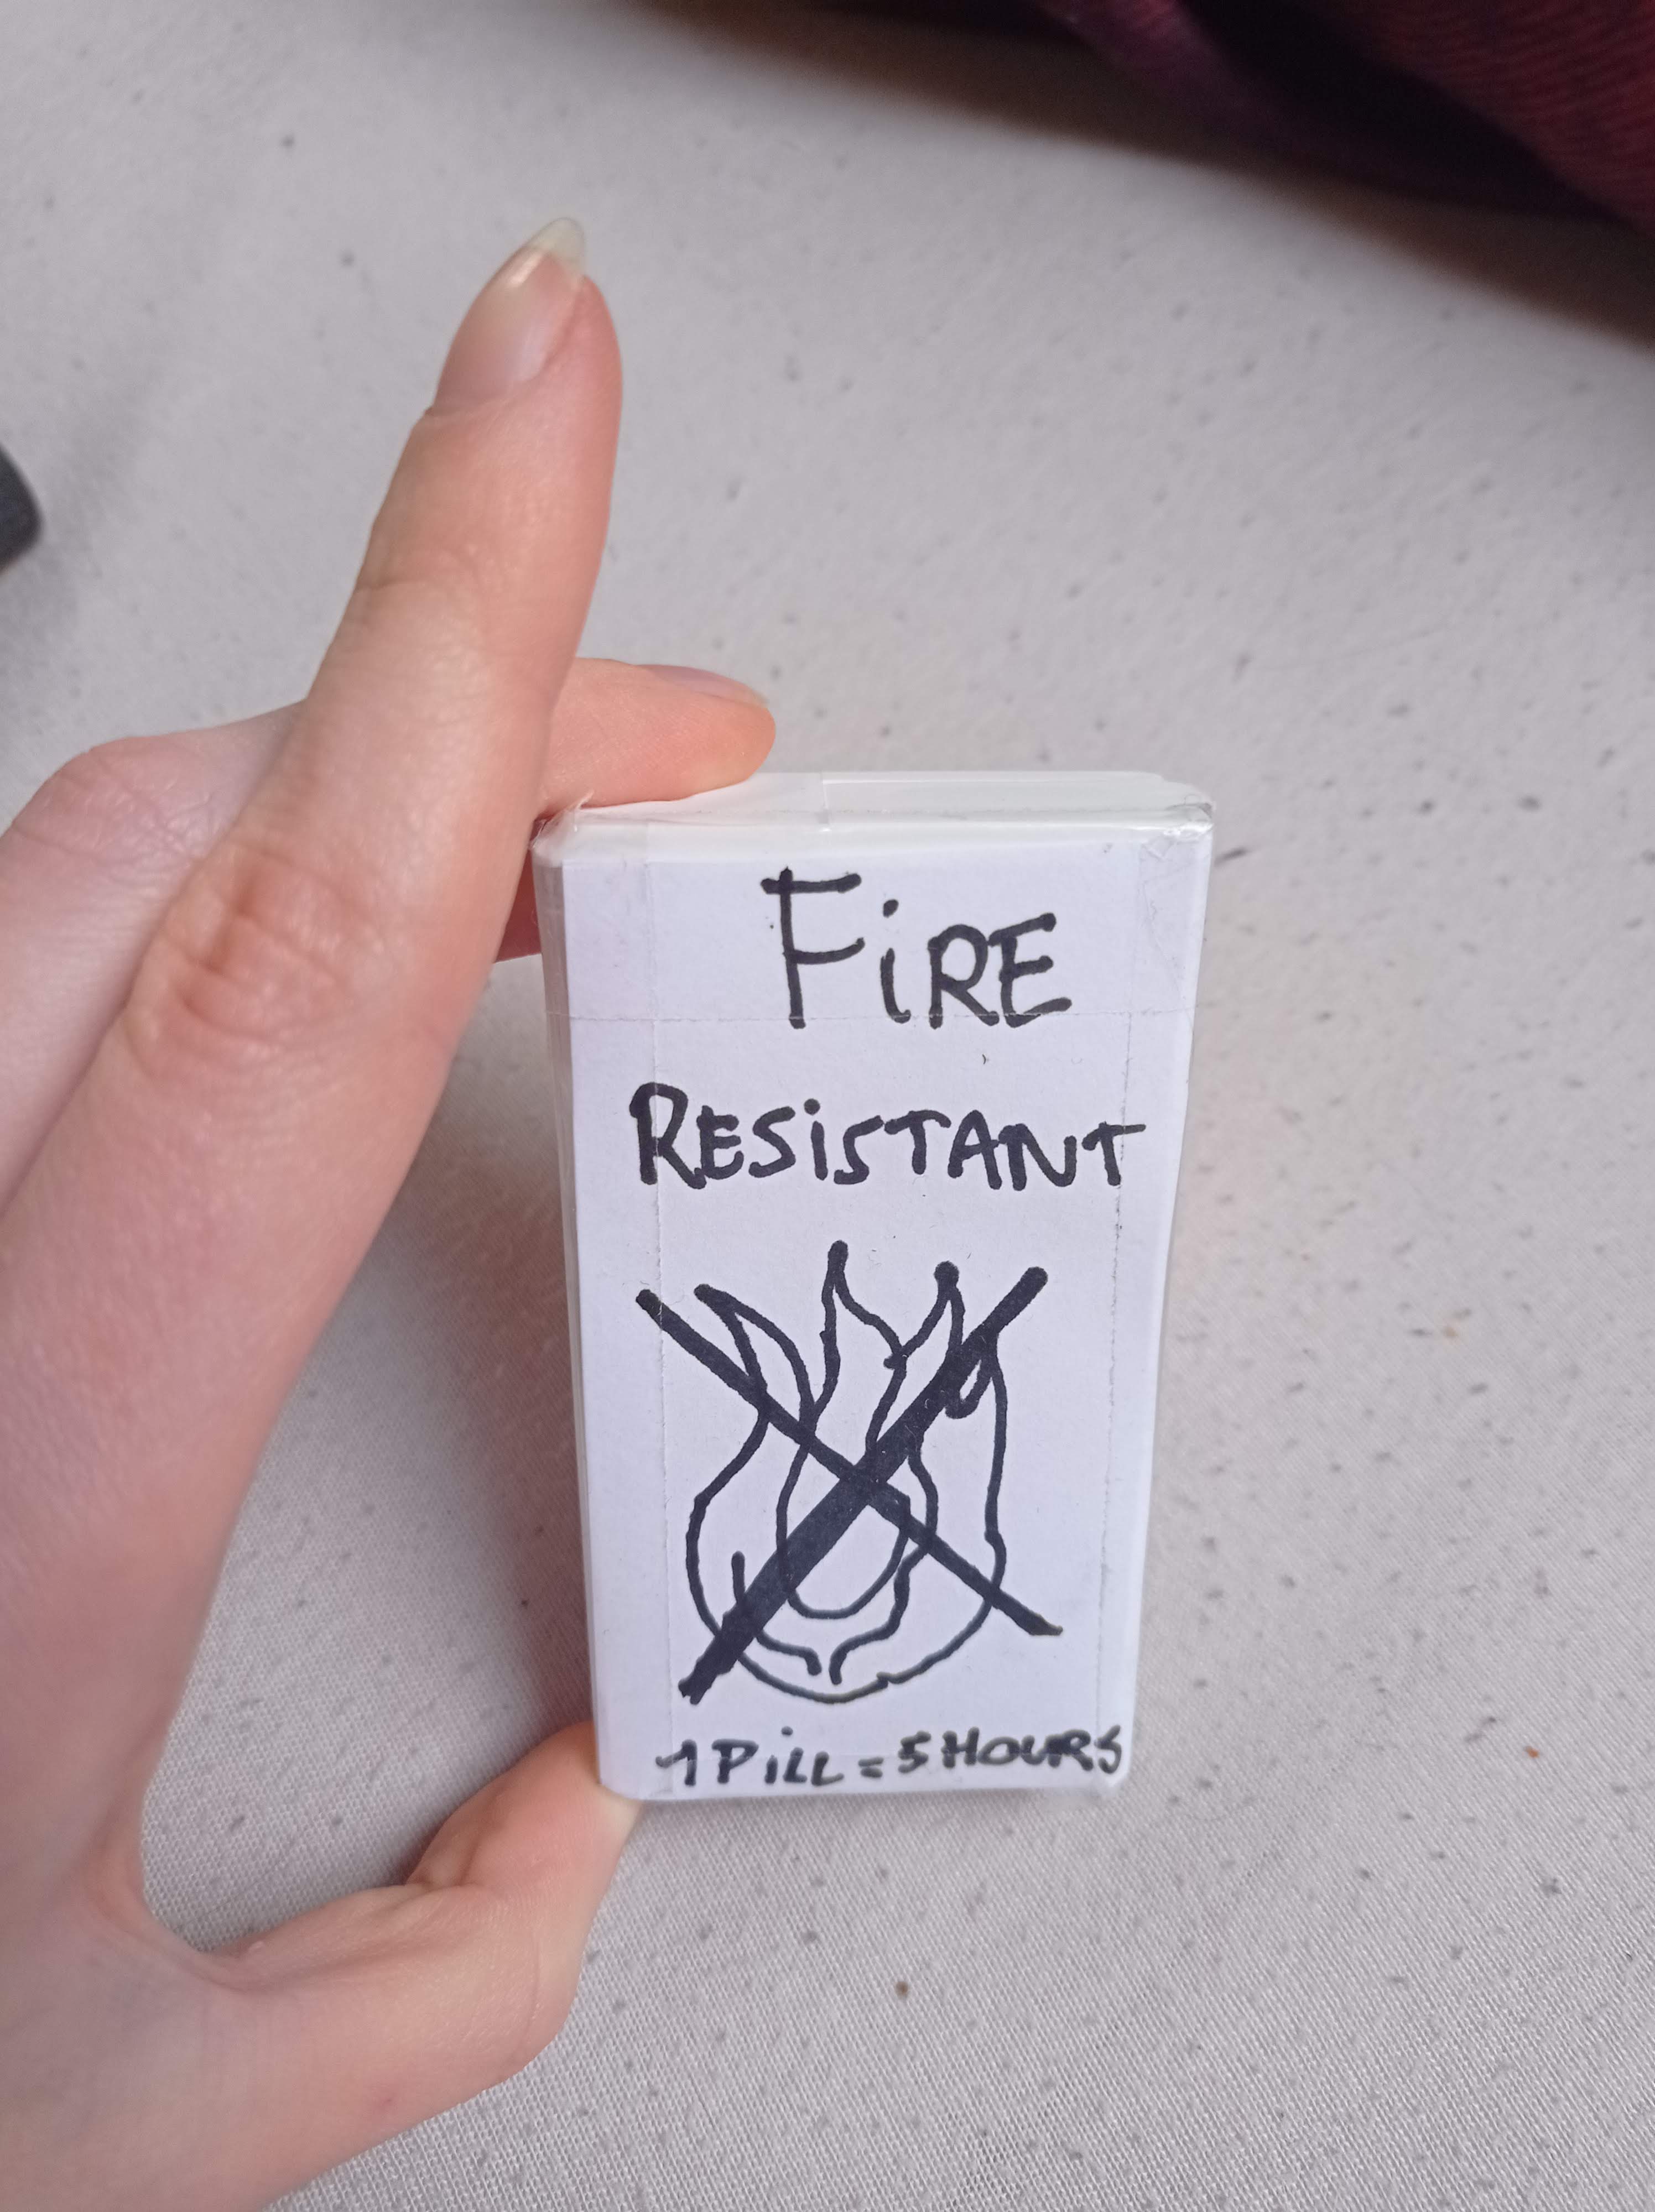 FiRE
RESiSTANT
1 PiLL = 5 HOURS